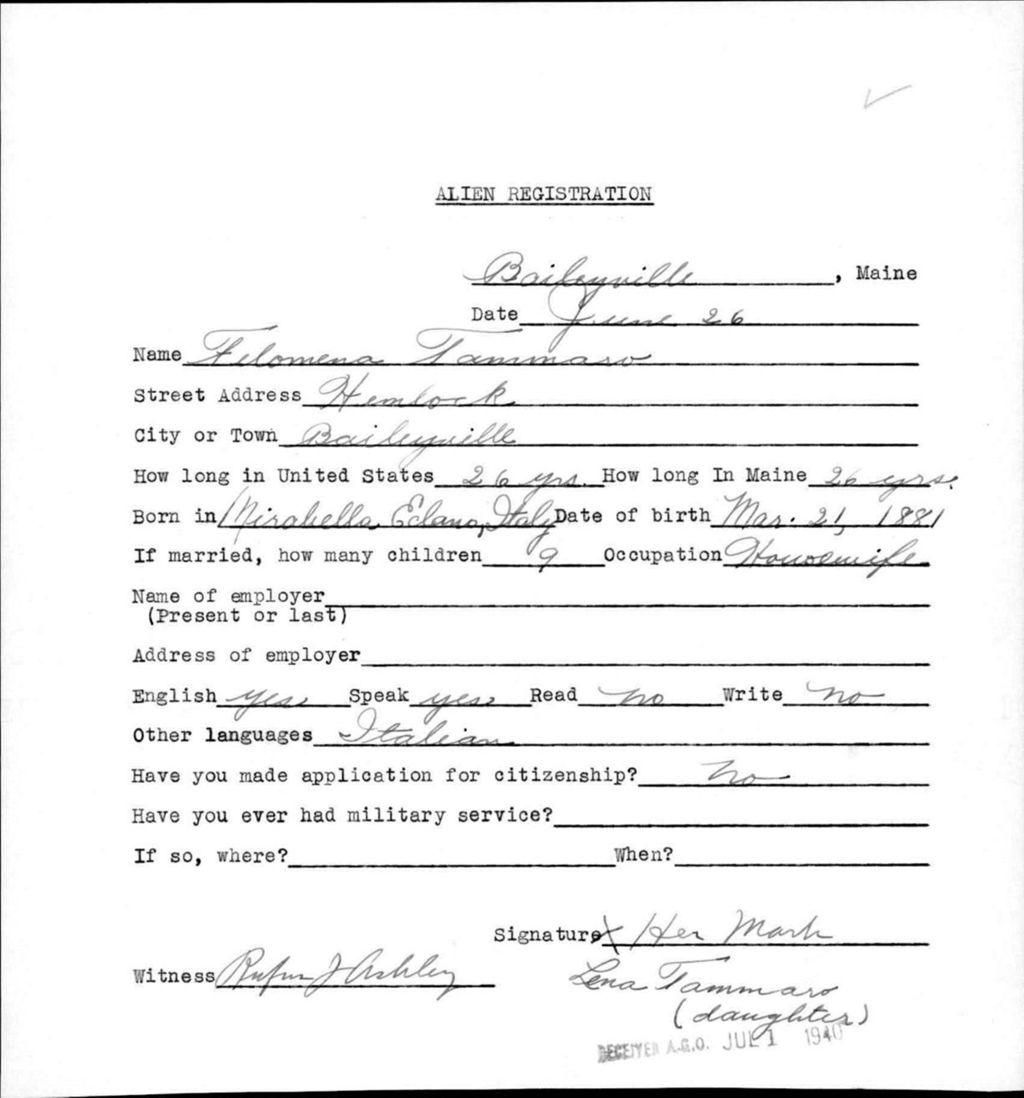 ALIEN REGISTRATION
Baileyville, Maine
Date June 26
Name Filomena Tammaro
Street Address Hemlock
City or Town Baileyville
How long in United States 26 yrs. How long In Maine 26 yrs.
Born in Mirabella Eclano, Italy Date of birth Mar. 21, 1881
If married, how many children 9 Occupation Housewife
Name of employer
(Present or last)
Address of employer
English yes Speak yes Read no Write no
Other languages Italian
Have you made application for citizenship? no
Have you ever had military service?
If so, where? When?
Signature X Her Mark
Witness Rufus J Ashley Lena Tammaro
(daughter)
RECEIVED A.G.O. JUL 1 1940